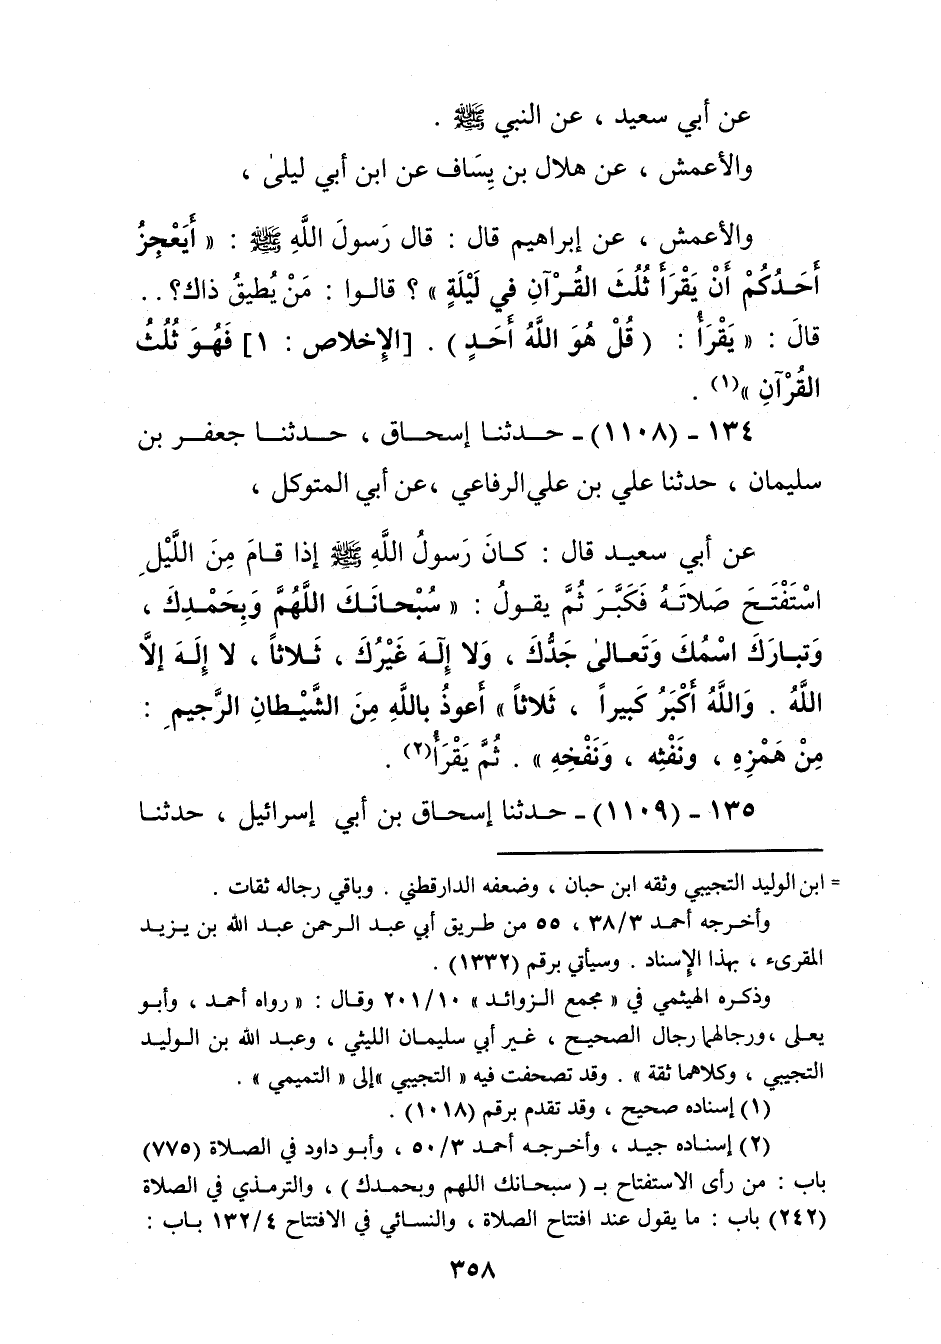 عن أبي سعيد ، عن النبي ﷺ .
والأعمش ، عن هلال بن يِسَاف عن ابن أبي ليلىٰ ،
والأعمش ، عن إبراهيم قال : قال رَسولَ اللَّهِ ﷺ : « أَيَعْجِزُ
أَحَـدُكُمْ أَنْ يَقْرَأَ ثُلُثَ القُـرْآنِ في لَيْلَةٍ » ؟ قالـوا : مَنْ يُطيقُ ذاك؟ . .
قالَ : « يَقْرَأُ : ( قُلْ هُوَ اللَّهُ أَحَـدٍ ) . [الإِخلاص : ١] فَهُوَ ثُلُثُ
القُرْآنِ »(١) .
١٣٤ ـ (١١٠٨) ـ حـدثنـا إسحـاق ، حـدثنـا جعفـر بن
سليمان ، حدثنا علي بن علي الرفاعي ،عن أبي المتوكل ،
عن أبي سعيـد قال : كـانَ رَسولُ اللَّهِ ﷺ إذا قـامَ مِنَ اللَّيْلِ
اسْتَفْتَـحَ صَلاتَـهُ فَكَبَّرَ ثُمَّ يقـولُ : « سُبْحانَـكَ اللَّهُمَّ وَبِحَمْـدِكَ ،
وَتبـارَكَ اسْمُكَ وَتَعـالىٰ جَدُّكَ ، وَلا إِلَـهَ غَيْرُكَ ، ثَـلاثاً ، لا إِلَـهَ إلاَّ
اللَّهُ . وَاللَّهُ أَكْبَرُ كَبيراً ، ثَلاثاً » أَعوذُ باللَّهِ مِنَ الشَّيْـطانِ الرَّجيمِ :
مِنْ هَمْزِهِ ، ونَفْثِه ، وَنَفْخِهِ » . ثُمَّ يَقْرَأُ(٢) .
١٣٥ ـ (١١٠٩) ـ حـدثنا إسحـاق بن أبي إسرائيل ، حدثنـا
= ابن الوليد التجيبي وثقه ابن حبان ، وضعفه الدارقطني . وباقي رجاله ثقات .
وأخـرجه أحمـد ٣٨/٣ ، ٥٥ من طـريق أبي عبد الـرحمن عبـد الله بن يـزيـد
المقرىء ، بهذا الإِسناد . وسيأتي برقم (١٣٣٢) .
وذكـره الهيثمي في « مجمع الـزوائـد » ٢٠١/١٠ وقـال : « رواه أحمـد ، وأبـو
يعلـى ،ورجالهما رجال الصحيـح ، غـير أبي سليمـان الليثي ، وعبـد الله بن الـوليـد
التجيبي ، وكلاهما ثقة » . وقد تصحفت فيه « التجيبي »إلى « التميمي » .
(١) إسناده صحيح ، وقد تقدم برقم (١٠١٨) .
(٢) إسنـاده جيـد ، وأخـرجـه أحمـد ٥٠/٣ ، وأبـو داود في الصـلاة (٧٧٥)
باب : من رأى الاستفتاح بـ ( سبحانك اللهم وبحمدك ) ، والترمذي في الصلاة
(٢٤٢) باب : ما يقول عند افتتاح الصلاة ، والنسائي في الافتتاح ١٣٢/٤ بـاب :
٣٥٨